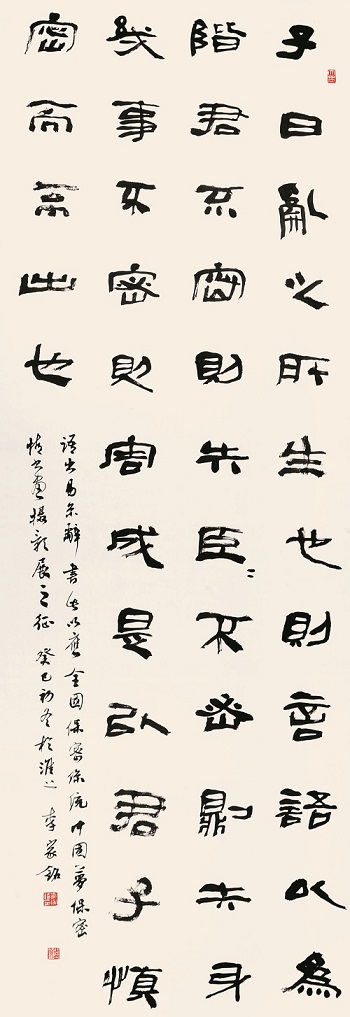 子曰亂之所生也則言語以為
階君不密則失臣〻不密則失身
幾事不密則害成是以君子慎
密而不出也
語出易系辭書此以應全国保密系统中国夢保密
情书畫攝影展之征癸巳初冬於上李家